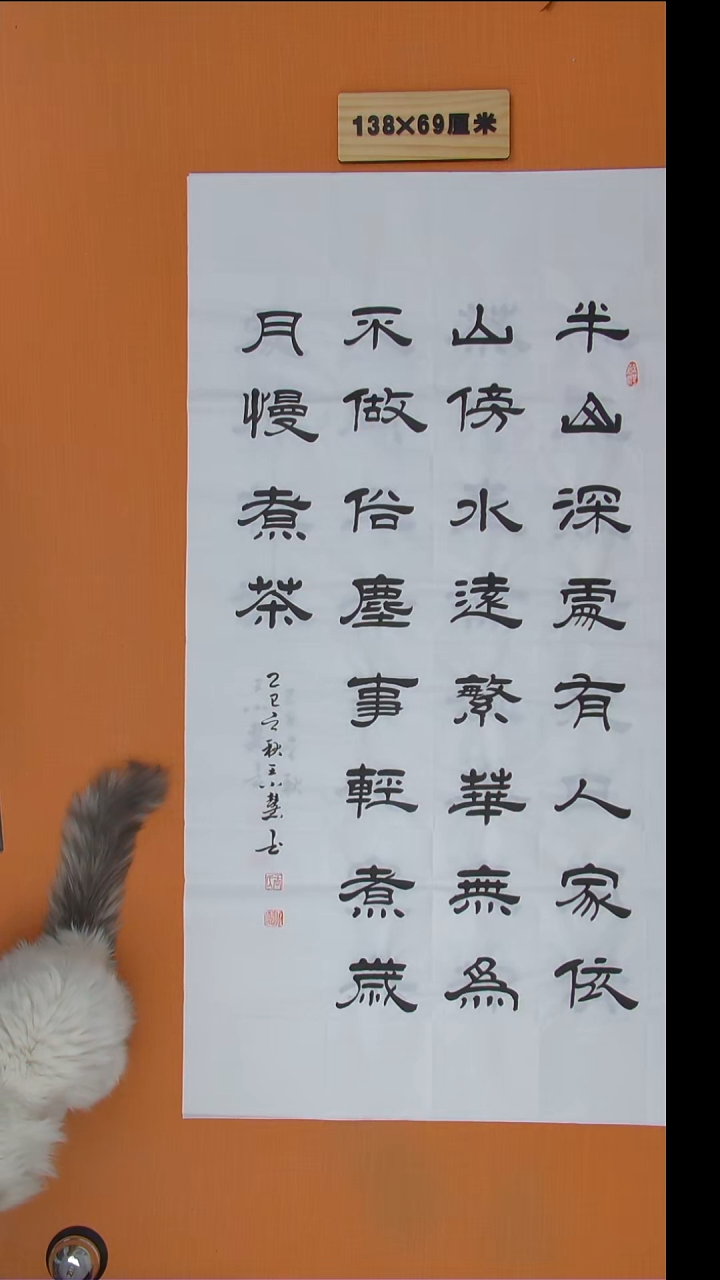 138×69厘米
半山深處有人家依
山傍水遠繁華無為
不做俗塵事輕煮歲
月慢煮茶
乙巳立秋 书